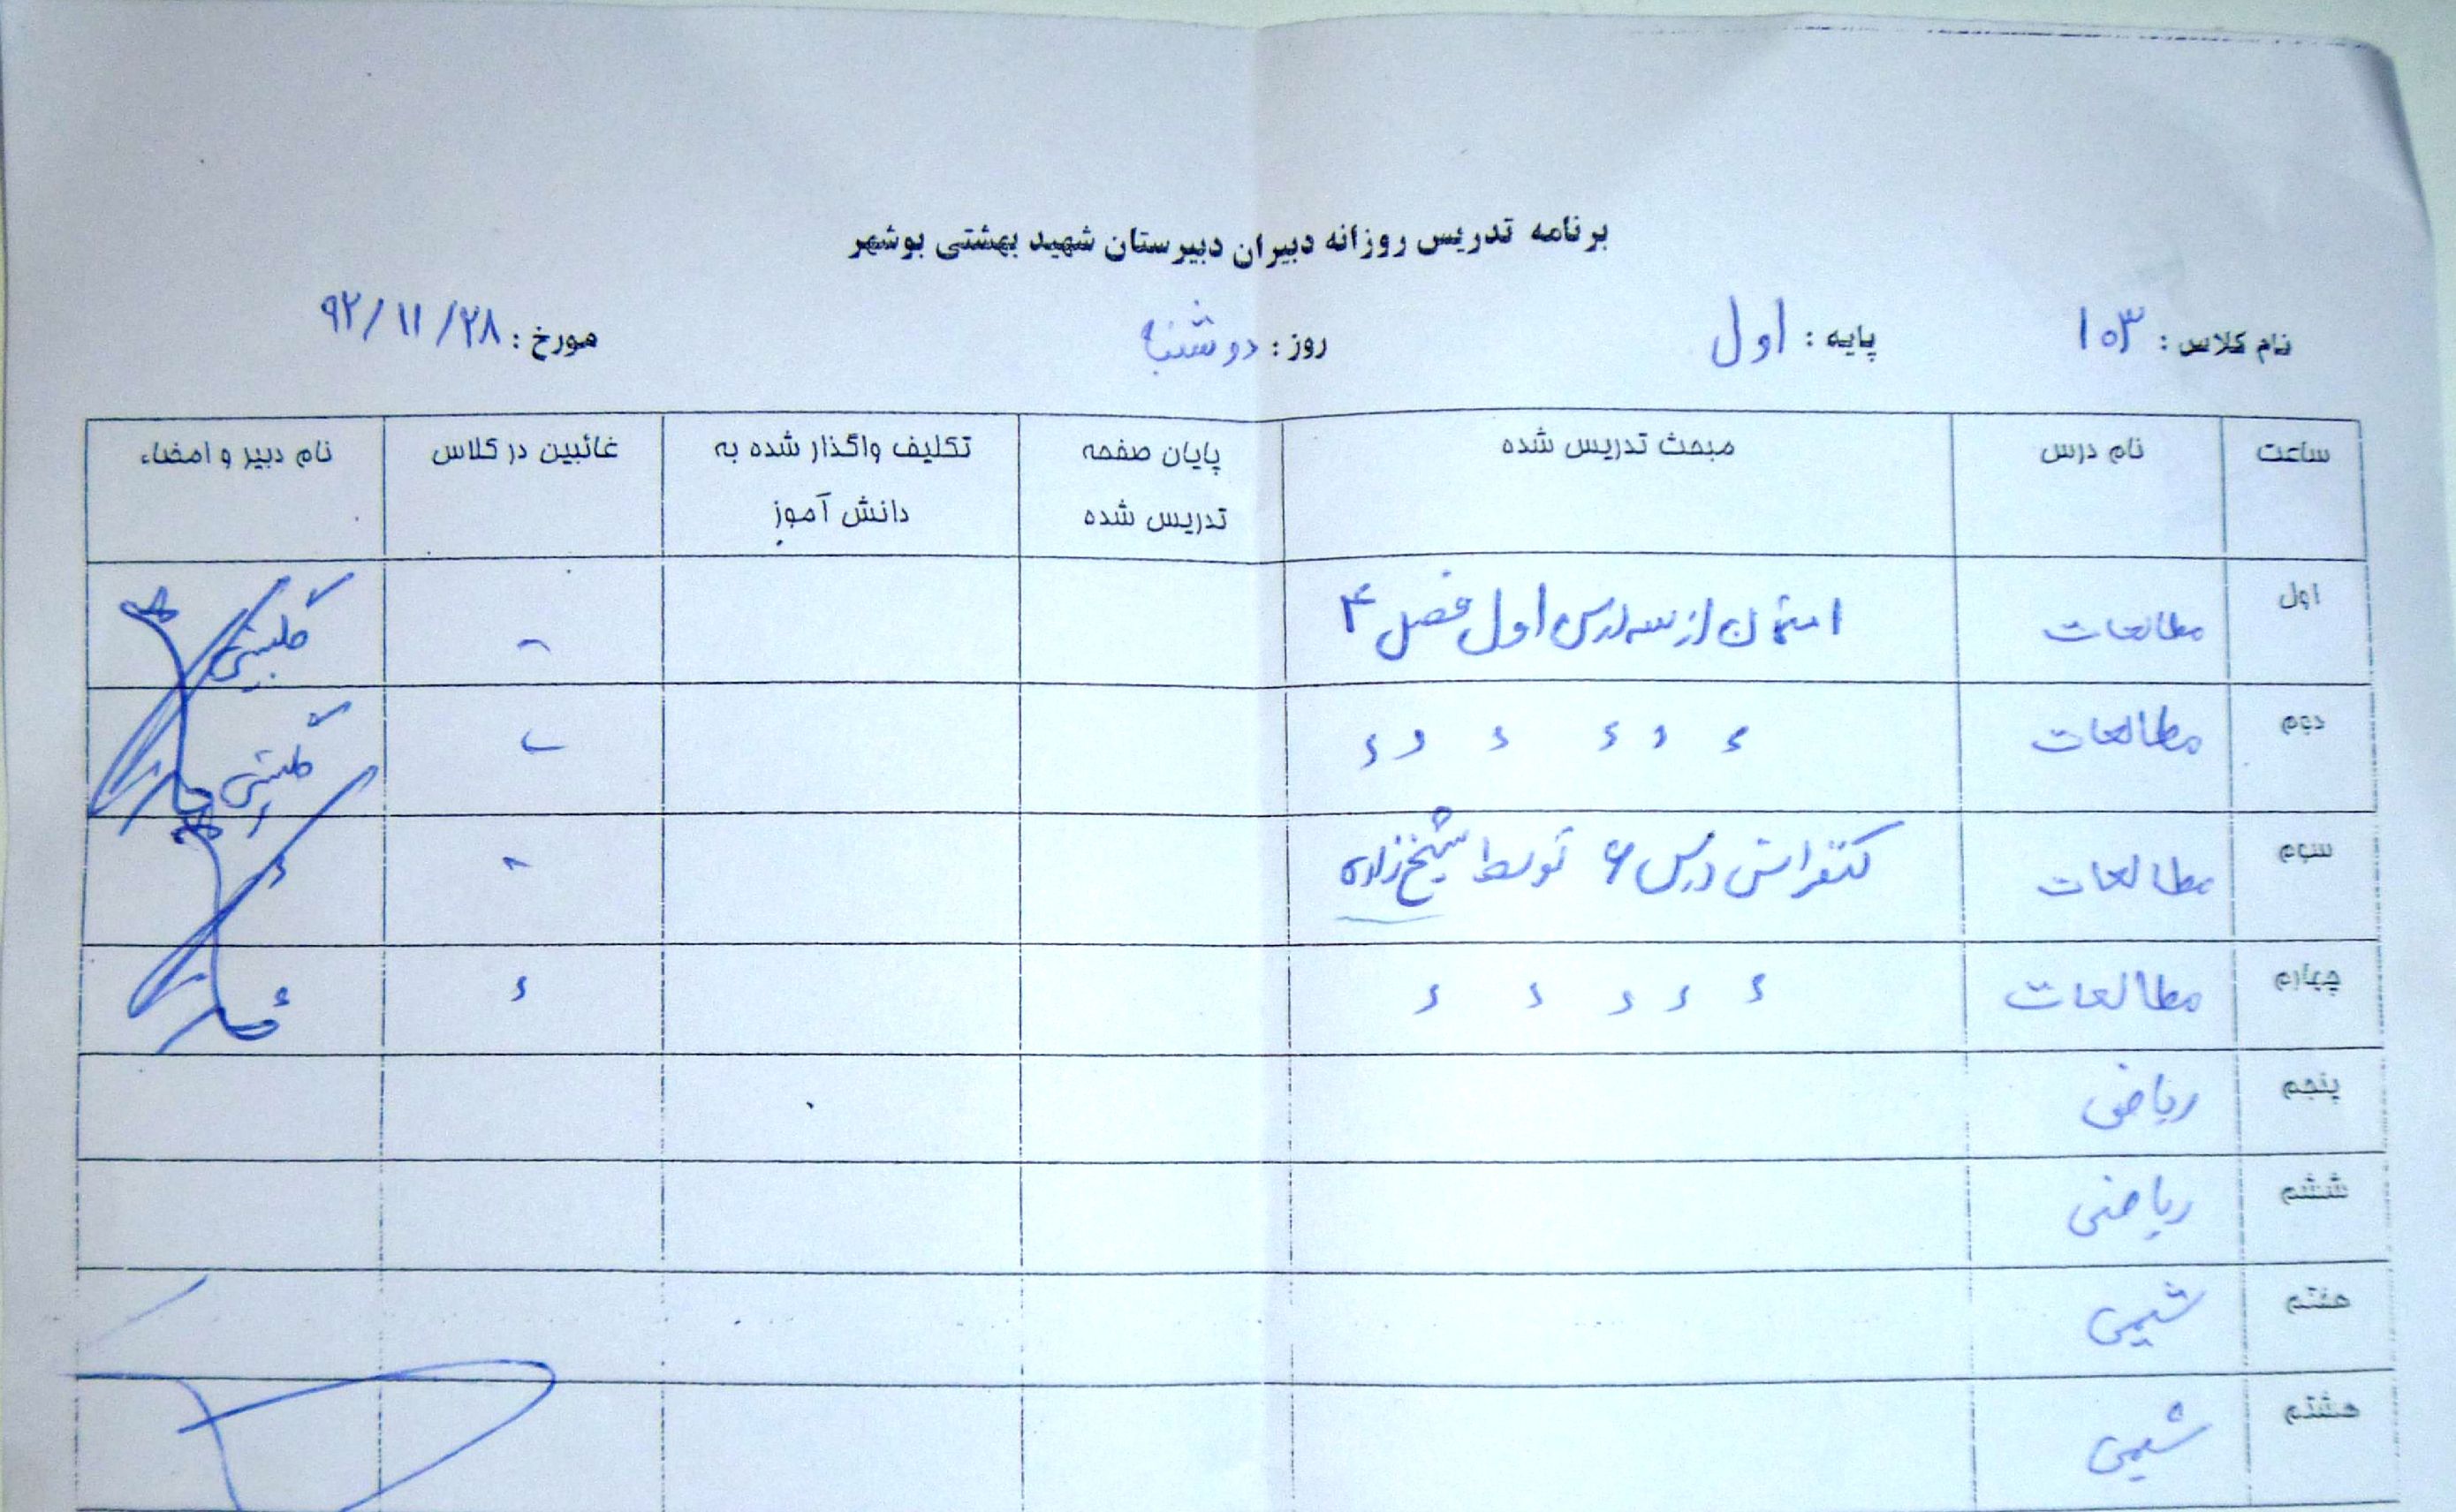 برنامه تدریس روزانه دبیران دبیرستان شهید بهشتی بوشهر
نام کلاس : ۱۰۳ پایه : اول روز : دوشنبه مورخ : ۹۲/۱۱/۲۸
ساعت نام درس مبحث تدریس شده پایان صفحه تدریس شده تکلیف واگذار شده به دانش آموز غائبین در کلاس نام دبیر و امضاء
اول مطالعات امتحان از سه درس اول فصل ۴ -
دوم مطالعات ء ء ء ء ء ء -
سوم مطالعات کنفرانس درس ۶ توسط شیخ زاده -
چهارم مطالعات ء ء ء ء ء ء
پنجم ریاضی
ششم ریاضی
هفتم شیمی
هشتم شیمی